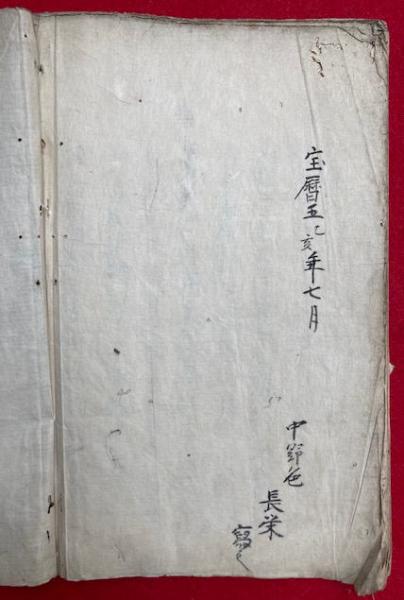 宝暦五乙亥年七月
中野邑
長栄
寫之